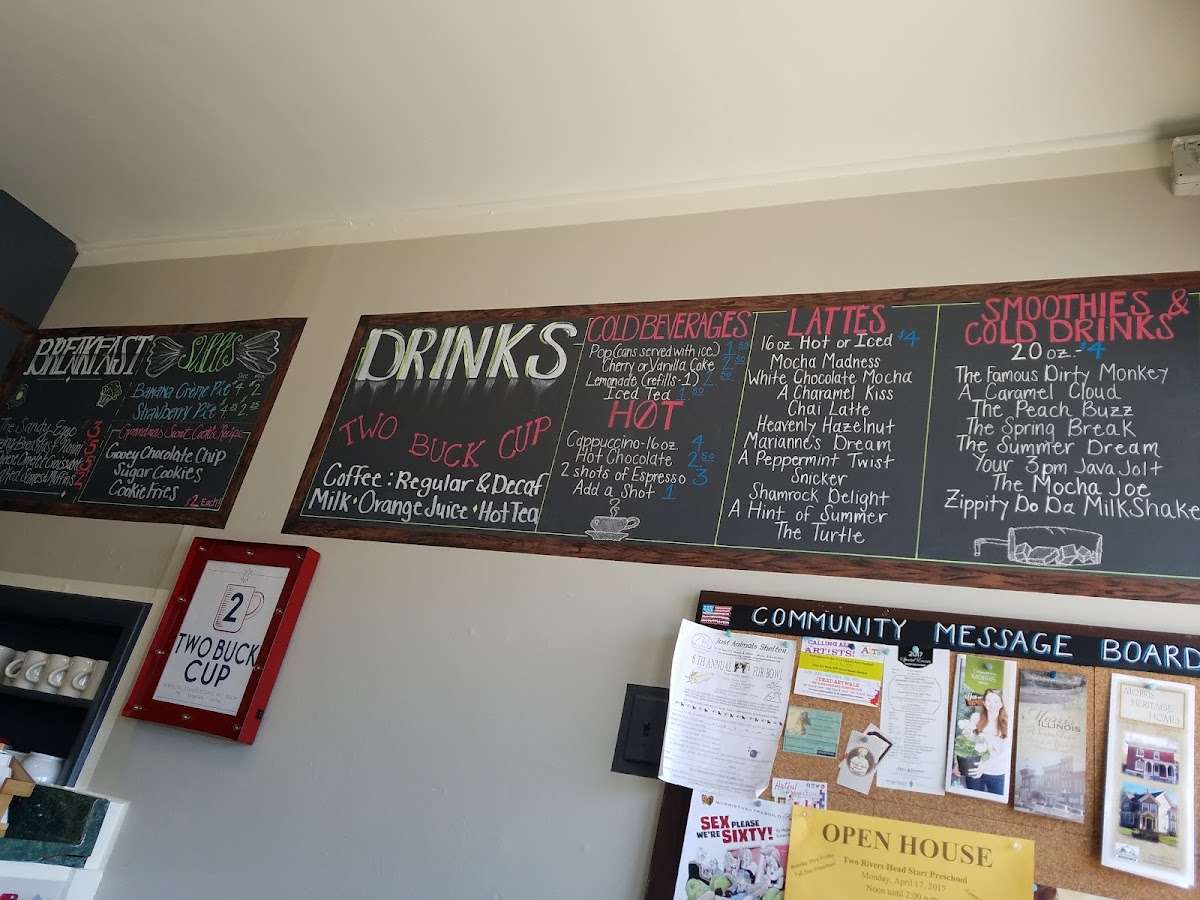 BREAKFAST
SWEETS
Banana Crème Pie 4 2
Strawberry Pie
Grandma's Secret Cookie Recipe
Gooey Chocolate Chip
Sugar Cookies
Cookie Fries
$2 Each!
The Sandy Egg
DRINKS
TWO BUCK CUP
Coffee: Regular & Decaf
Milk • Orange Juice • Hot Tea
COLD BEVERAGES
Pop (cans served with ice) 1.50
Cherry or Vanilla Coke 2.50
Lemonade (refills-1) 2.50
Iced Tea 1.50
HOT
Cappuccino-16oz. 4
Hot Chocolate 2.50
2 shots of Espresso 3
Add a Shot 1
LATTES
16oz Hot or Iced $4
Mocha Madness
White Chocolate Mocha
A Charamel Kiss
Chai Latte
Heavenly Hazelnut
Marianne's Dream
A Peppermint Twist
Snicker
Shamrock Delight
A Hint of Summer
The Turtle
SMOOTHIES &
COLD DRINKS
20oz.-$4
The Famous Dirty Monkey
A Caramel Cloud
The Peach Buzz
The Spring Break
The Summer Dream
Your 3pm Java Jolt
The Mocha Joe
Zippity Do Da MilkShake
2
TWO BUCK
CUP
COMMUNITY MESSAGE BOARD
Just Animals Shelter
8TH ANNUAL FUR BOWL
CALLING ALL
ARTISTS!
2017
MORRIS
ILLINOIS
MORRIS
HERITAGE
HOMES
SEX PLEASE
WE'RE SIXTY!
OPEN HOUSE
Two Rivers Head Start Preschool
Monday, April 17, 2017
Noon until 2:00
Monday thru Friday
Full Day Preschool